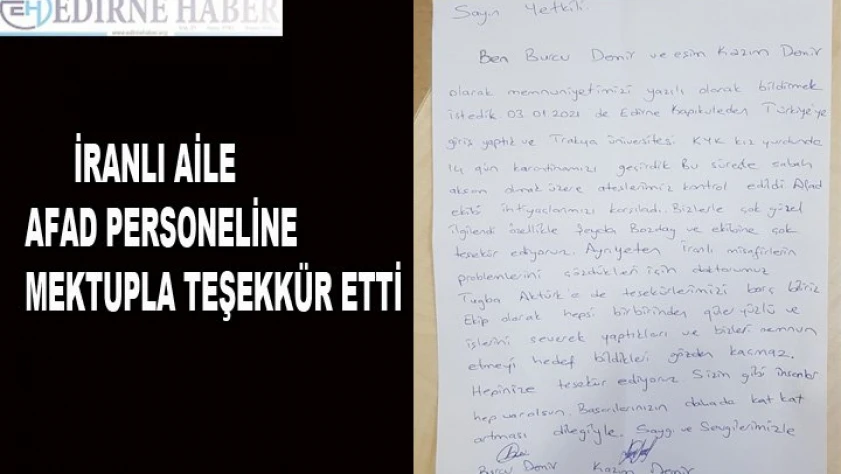 EDİRNE HABER
www.edirnehaber.org
İRANLI AİLE
AFAD PERSONELİNE
MEKTUPLA TEŞEKKÜR ETTİ
Sayın Yetkili.
Ben Burcu Demir ve eşim Kazım Demir
olarak memnuniyetimizi yazılı olarak bildirmek
istedik. 03.01.2021 de Edirne Kapıkuleden Türkiye'ye
giriş yaptık ve Trakya üniversitesi KYK kız yurdunda
14 gün karantinamızı geçirdik Bu sürede sabah
akşam olmak üzere ateşlerimiz kontrol edildi. Afad
ekibi ihtiyaçlarımızı karşıladı. Bizlerle çok güzel
ilgilendi özellikle Şeyda Bozdağ ve ekibine çok
teşekür ediyoruz. Ayrıyeten İranlı misafirlerin
problemlerini çözdükleri için doktorumuz
Tuğba Aktürk'e de teşekürlerimizi borç biliriz
Ekip olarak hepsi birbirinden güler yüzlü ve
işlerini severek yaptıkları ve bizleri memnun
etmeyi hedef bildikleri gözden kaçmaz.
Hepinize teşekür ediyoruz Sizin gibi insanlar
hep varolsun. Başarılarınızın dahada kat kat
artması dileğiyle. Saygı ve Sevgilerimizle
Burcu Demir Kazım Demir